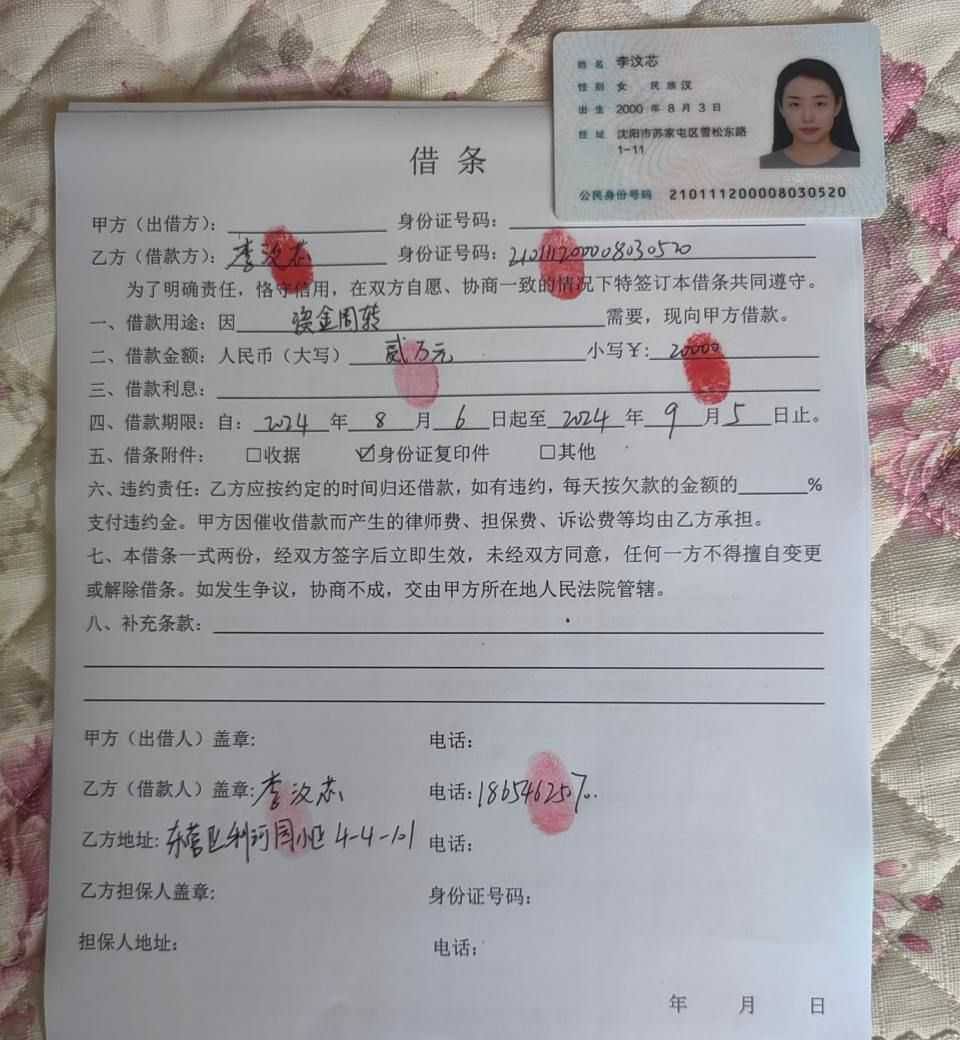 姓名 李汶芯
性别 女 民族 汉
出生 2000 年 8 月 3 日
住址 沈阳市苏家屯区雪松东路
1-11
公民身份号码 210111200008030520
借 条
甲方（出借方）： 身份证号码：
乙方（借款方）：李汶芯 身份证号码：210111200008030520
为了明确责任，恪守信用，在双方自愿、协商一致的情况下特签订本借条共同遵守。
一、借款用途：因 资金周转 需要，现向甲方借款。
二、借款金额：人民币（大写） 贰万元 小写￥： 20000
三、借款利息：
四、借款期限：自：2024 年 8 月 6 日起至 2024 年 9 月 5 日止。
五、借条附件： □收据 ☑身份证复印件 □其他
六、违约责任：乙方应按约定的时间归还借款，如有违约，每天按欠款的金额的______%
支付违约金。甲方因催收借款而产生的律师费、担保费、诉讼费等均由乙方承担。
七、本借条一式两份，经双方签字后立即生效，未经双方同意，任何一方不得擅自变更
或解除借条。如发生争议，协商不成，交由甲方所在地人民法院管辖。
八、补充条款：
甲方（出借人）盖章： 电话：
乙方（借款人）盖章：李汶芯 电话：1865462507
乙方地址：东营区利河园小区 4-4-101 电话：
乙方担保人盖章： 身份证号码：
担保人地址： 电话：
年 月 日